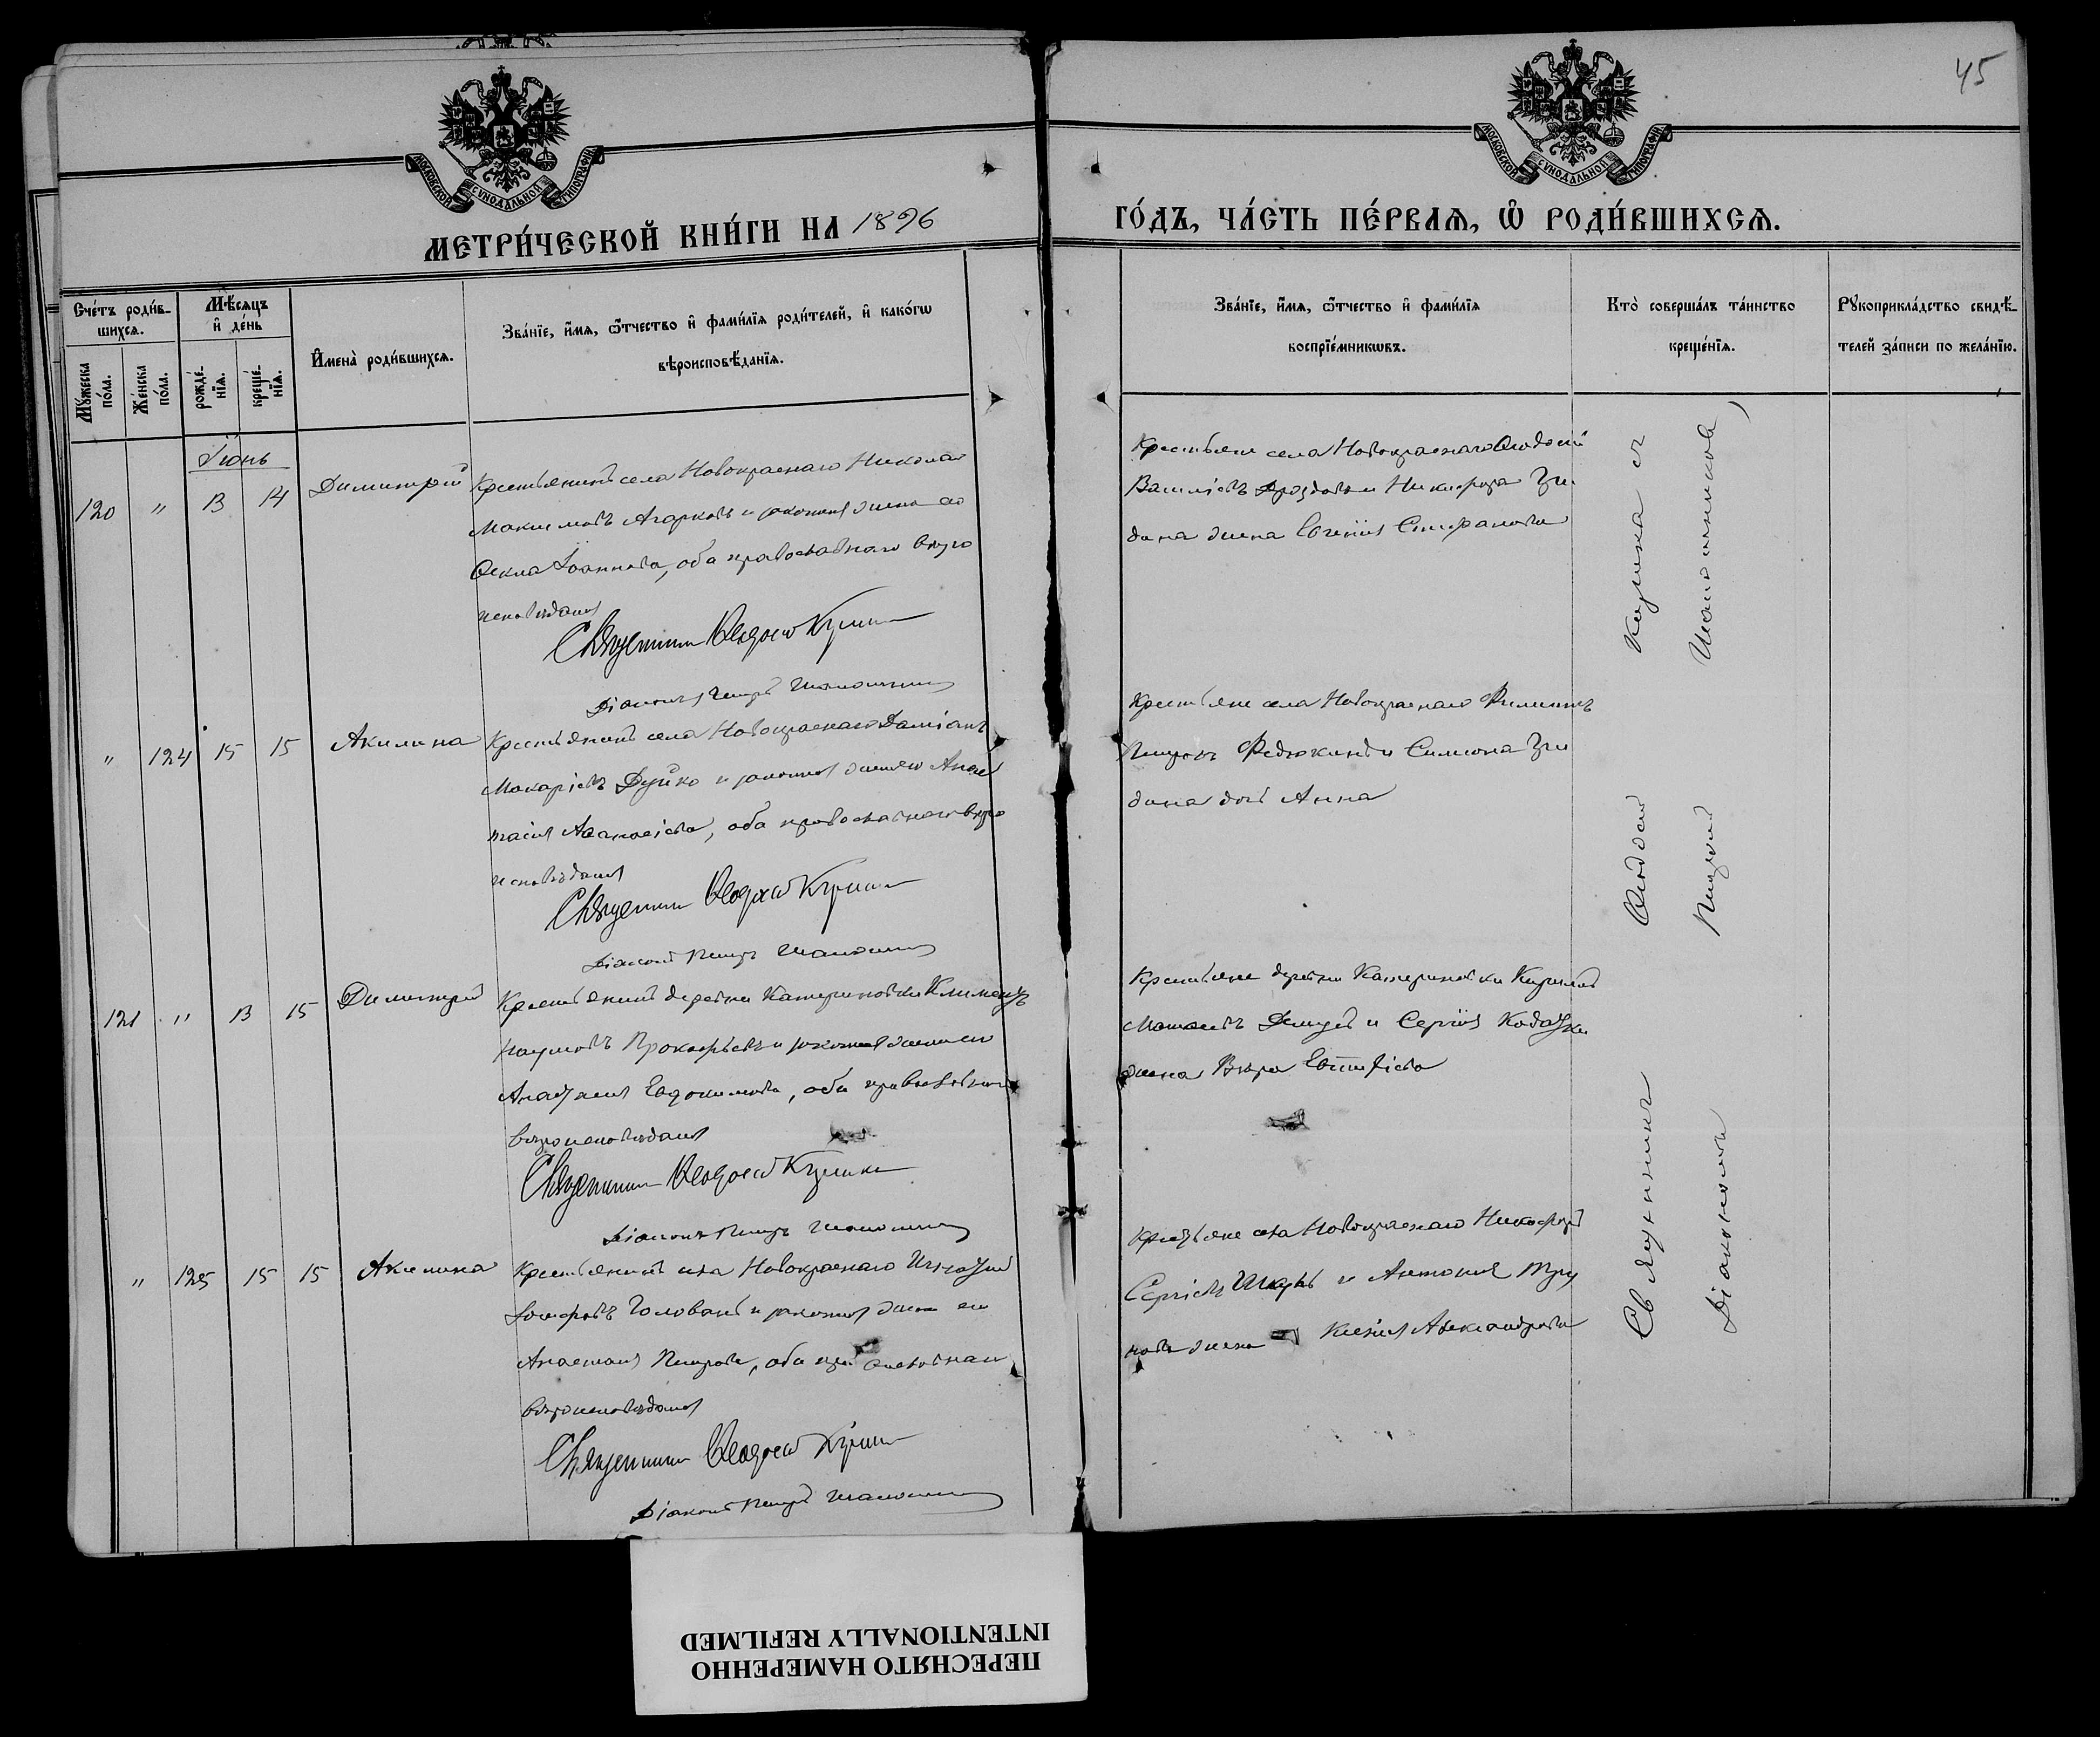 45
МОСКОВСКОЙ СѴНОДАЛЬНОЙ ТИПОГРАФІИ
МОСКОВСКОЙ СѴНОДАЛЬНОЙ ТИПОГРАФІИ
МЕТРИ́ЧЕСКОЙ КНИ́ГИ НА 1896
ГО́ДЪ, ЧА́СТЬ ПЕ́РВАЯ, Ѿ РОДИ́ВШИХСЯ.
Сче́тъ роди́в-
шихся.
Мꙋ́жеска
по́ла.
Же́нска
по́ла.
Мѣ́сяцъ
и҆ де́нь
рожде́-
нїя.
креще́-
нїя.
И҆мена̀ роди́вшихся.
Зва́нїе, и҆́мя, ѻ҆́тчество и҆ фами́лїя роди́телей, и҆ како́гѡ
вѣроисповѣ́данїя.
Зва́нїе, и҆́мя, ѻ҆́тчество и҆ фами́лїя
воспрїе́мникѡвъ.
Кто̀ соверша́лъ та́инство
креще́нїя.
Рꙋкоприкла́дство свидѣ́-
телей за́писи по жела́нїю.
Іюнь
120 " 13 14 Димитрій
Крестьянинъ села Новокраснаго Николай
Максимовъ Агарковъ и законная жена его
Ѳекла Іоаннова, оба православнаго вѣро
исповѣданія
Священникъ Ѳеодосій
Діаконъ Петръ
Крестьяне села Новокраснаго Ѳеодосій
Василіевъ Дроздовъ и Никифора
дана жена Евгенія Стефанова
" 124 15 15 Акилина
Крестьянинъ села Новокраснаго Даміанъ
Макаріевъ Дуйко и законная жена его Анас
тасія Аѳанасіева, оба православнаго вѣро
исповѣданія
Священникъ Ѳеодосій
Діаконъ Петръ
Крестьяне села Новокраснаго Филиппъ
Петровъ Федюкинъ и Симеона
дана дочь Анна
121 " 13 15 Димитрій
Крестьянинъ деревни Катериновки Климентъ
Наумовъ Прокофьевъ и законная жена его
Анастасія Евдокимова, оба православнаго
вѣроисповѣданія
Священникъ Ѳеодосій
Діаконъ Петръ
Крестьяне деревни Катериновки Кириллъ
Матѳеевъ и Сергія
жена Вѣра
" 125 15 15 Акилина
Крестьянинъ села Новокраснаго Игнатій
Іосифовъ Голованъ и законная жена его
Анастасія Петрова, оба православнаго
вѣроисповѣданія
Священникъ Ѳеодосій
Діаконъ Петръ
Крестьяне села Новокраснаго Никифоръ
Сергіевъ и Антонія Тру
нова жена Ксенія Александрова
Священникъ Ѳеодосій
Діакономъ Петромъ
ПЕРЕСНЯТО НАМЕРЕННО
INTENTIONALLY REFILMED